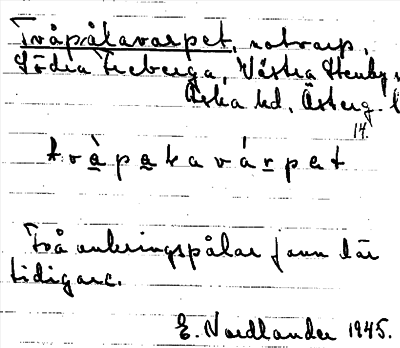 Tvåpålavarpet, notvarp,
Södra Freberga, Västra Stenby s
Aska hd, Österg. l
14.
tvàpakavárpet
Två ankringspålar fann där
tidigare.
E. Nordlander 1945.